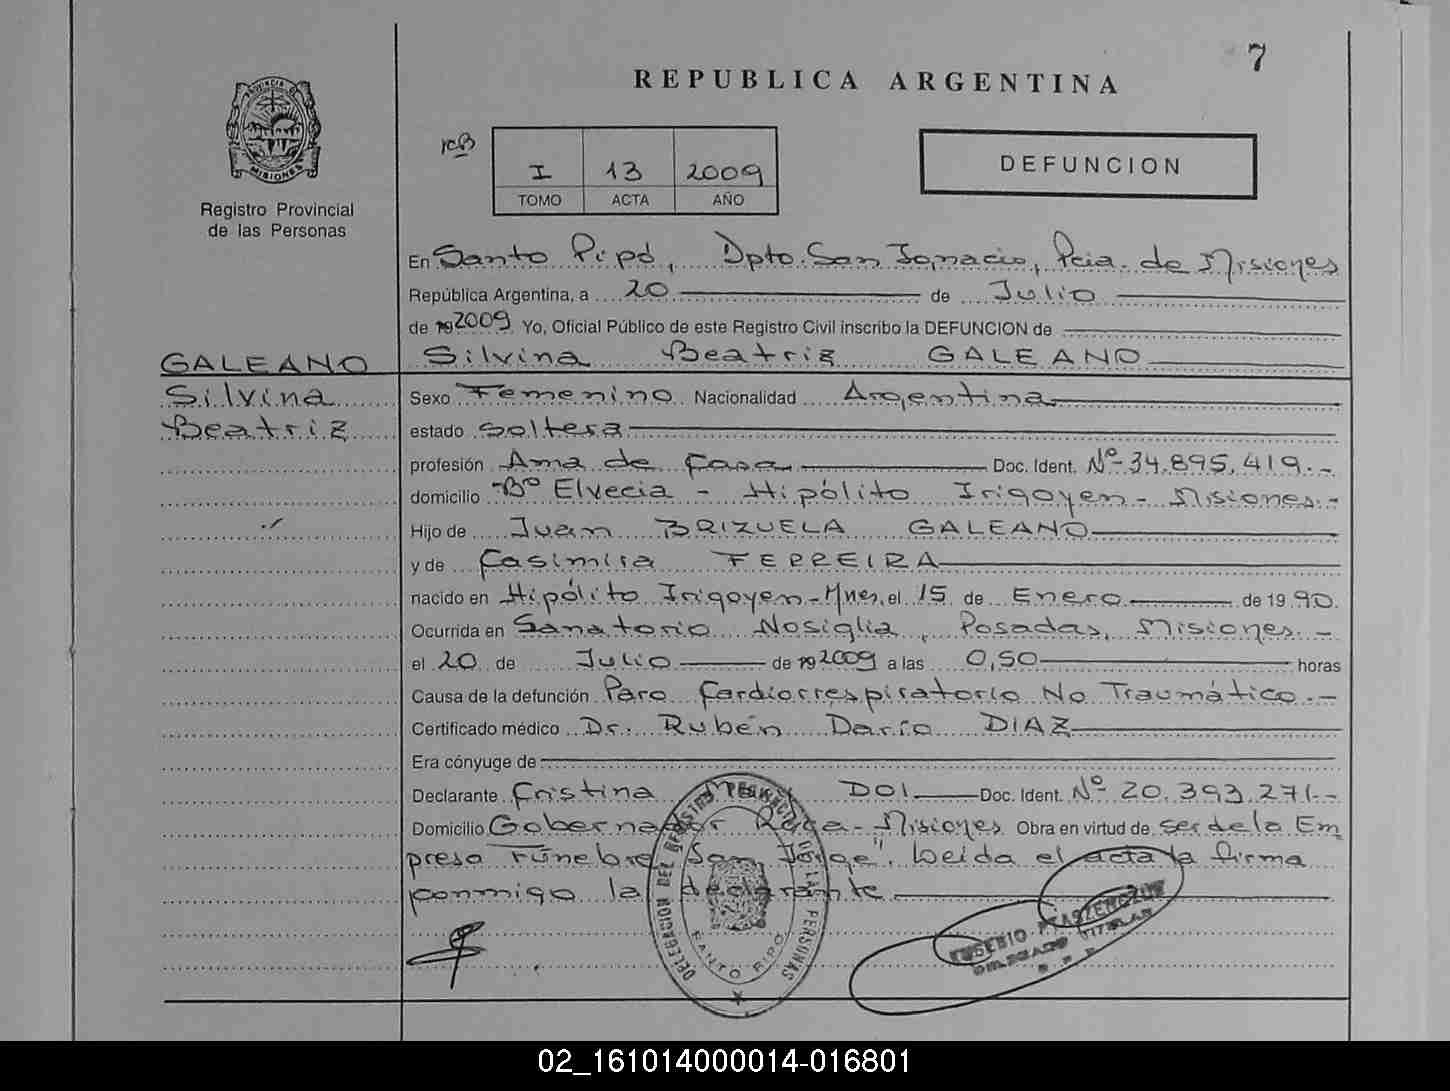 7
REPUBLICA ARGENTINA
PROVINCIA DE
MISIONES
Registro Provincial
de las Personas
I 13 2009
TOMO ACTA AÑO
DEFUNCION
En Santo Pipó, Dpto. San Ignacio, Pcia. de Misiones
República Argentina, a 20 de Julio
de 19 2009 Yo, Oficial Público de este Registro Civil inscribo la DEFUNCION de
Silvina Beatriz GALEANO
GALEANO
Silvina
Beatriz
Sexo Femenino Nacionalidad Argentina
estado Soltera
profesión Ama de Casa Doc. Ident. Nº 34.895.419.-
domicilio Bº Elvecia - Hipólito Irigoyen - Misiones.-
Hijo de Juan BRIZUELA GALEANO
y de Casimira FERREIRA
nacido en Hipólito Irigoyen - Mnes. el 15 de Enero de 19 90.
Ocurrida en Sanatorio Nosiglia, Posadas, Misiones.-
el 20 de Julio de 19 2009 a las 0,50 horas
Causa de la defunción Paro Cardiorrespiratorio No Traumático.-
Certificado médico Dr. Rubén Darío DIAZ
Era cónyuge de
Declarante Cristina DOI Doc. Ident. Nº 20.393.271.-
Domicilio Gobernador Roca - Misiones Obra en virtud de ser de la Em
presa Fúnebre "San Jorge". Leida el acta la firma
conmigo la declarante
DELEGACION DEL REGISTRO PROVINCIAL DE LAS PERSONAS
SANTO PIPO
EUSEBIO
DELEGADO TITULAR
02_161014000014-016801